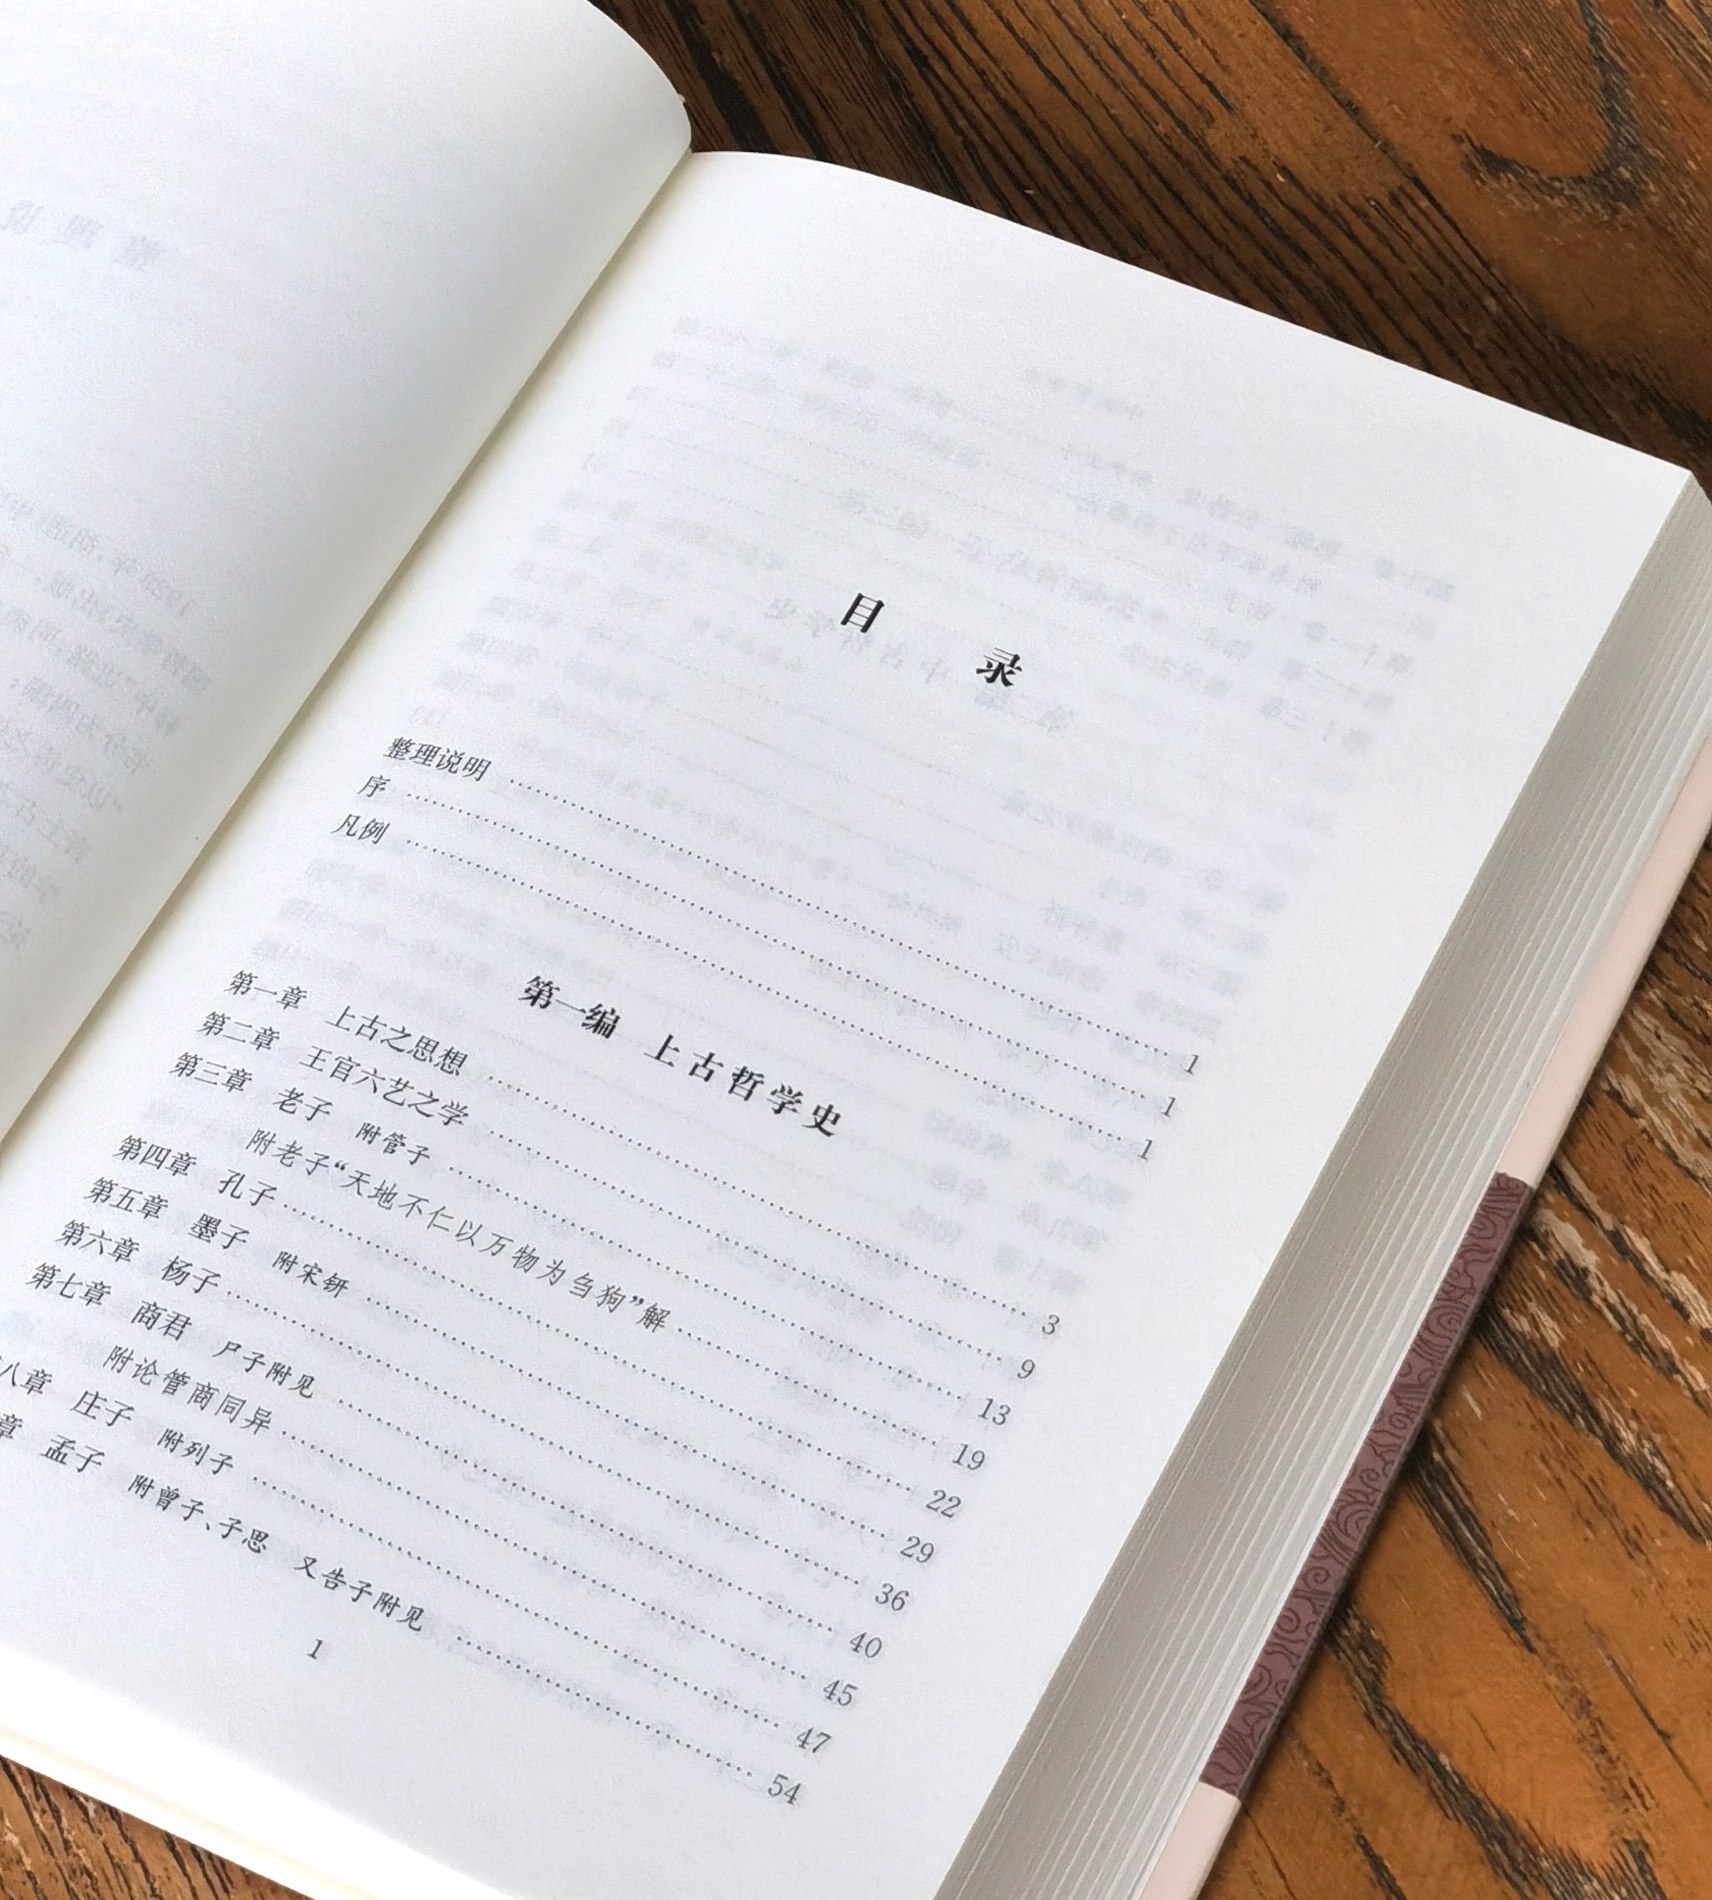 目 录
整理说明 1
序 1
凡例 1
第一编 上古哲学史
第一章 上古之思想 3
第二章 王官六艺之学 9
第三章 老子 附管子 13
附老子“天地不仁以万物为刍狗”解 19
第四章 孔子 22
第五章 墨子 附宋钘 29
第六章 杨子 36
第七章 商君 尸子附见 40
附论管商同异 45
八章 庄子 附列子 47
章 孟子 附曾子、子思 又告子附见 54
1